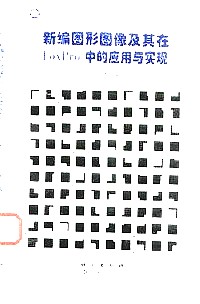 新编图形图像及其在
FoxPro 中的应用与实现